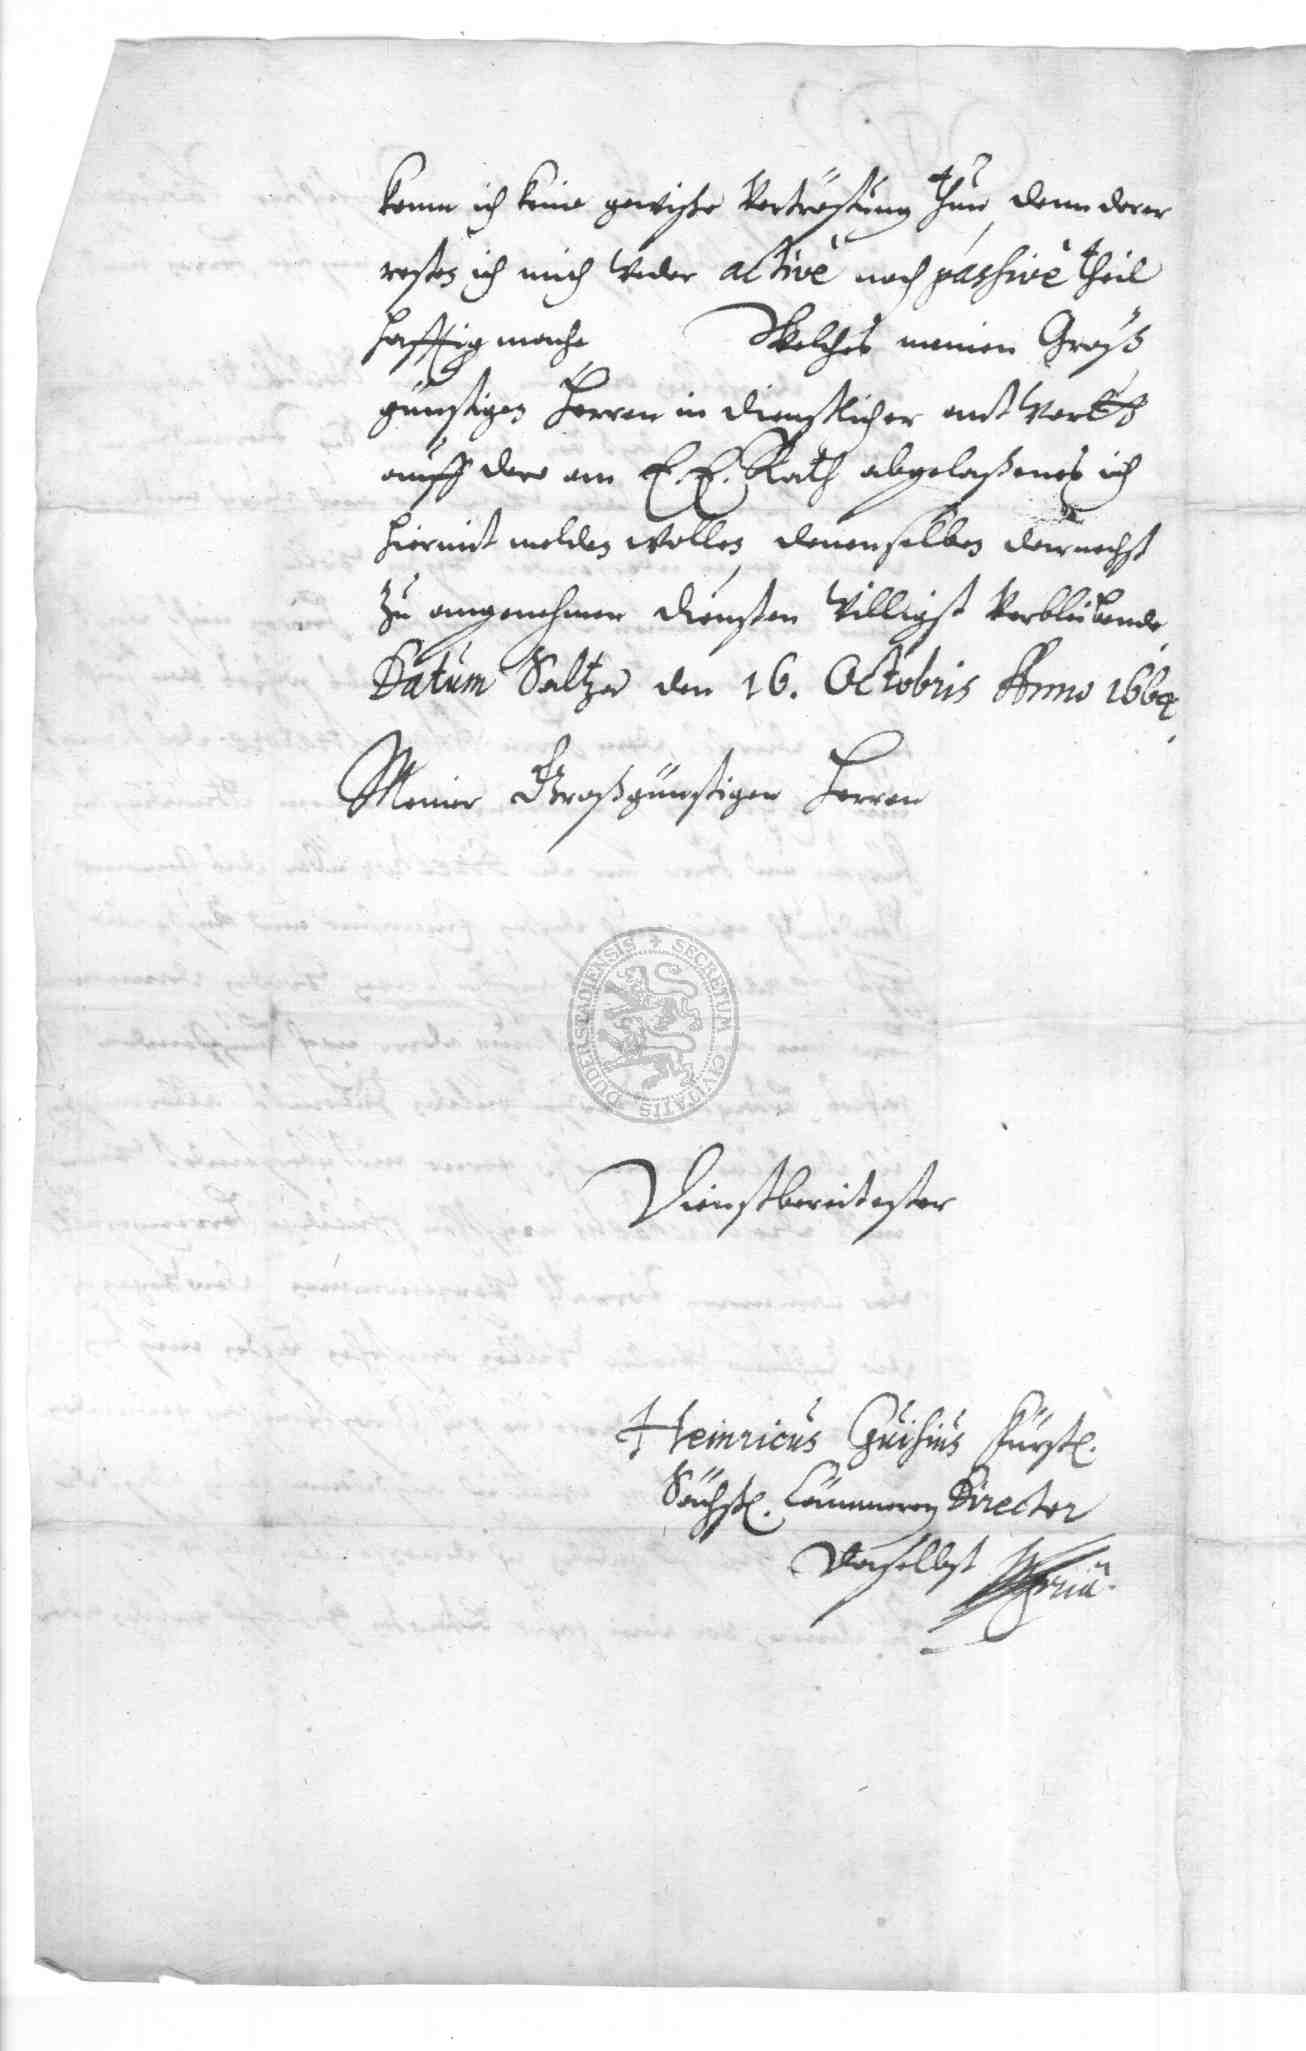 kann ich keine gewisse Vertröstung thun, denn derer
resten ich mich weder activè noch passivè theil
hafftig mache Welches meinen Groß
günstigen Herren in dienstlicher antwortt
auff dero an E. E. Rath abgelaßenes ich
hiermit melden wollen, denenselben dernechst
zu angenehmen diensten willigst Verbleibende,
Datum Saltza den 16. Octobris Anno 1664.
Meiner Großgünstigen Herren
DUDERSTADIENSIS + SECRETUM CIVITATIS
Dienstbereitester
Heinricus Fürstl.
Sächsl. Cämmerey Director
daselbst